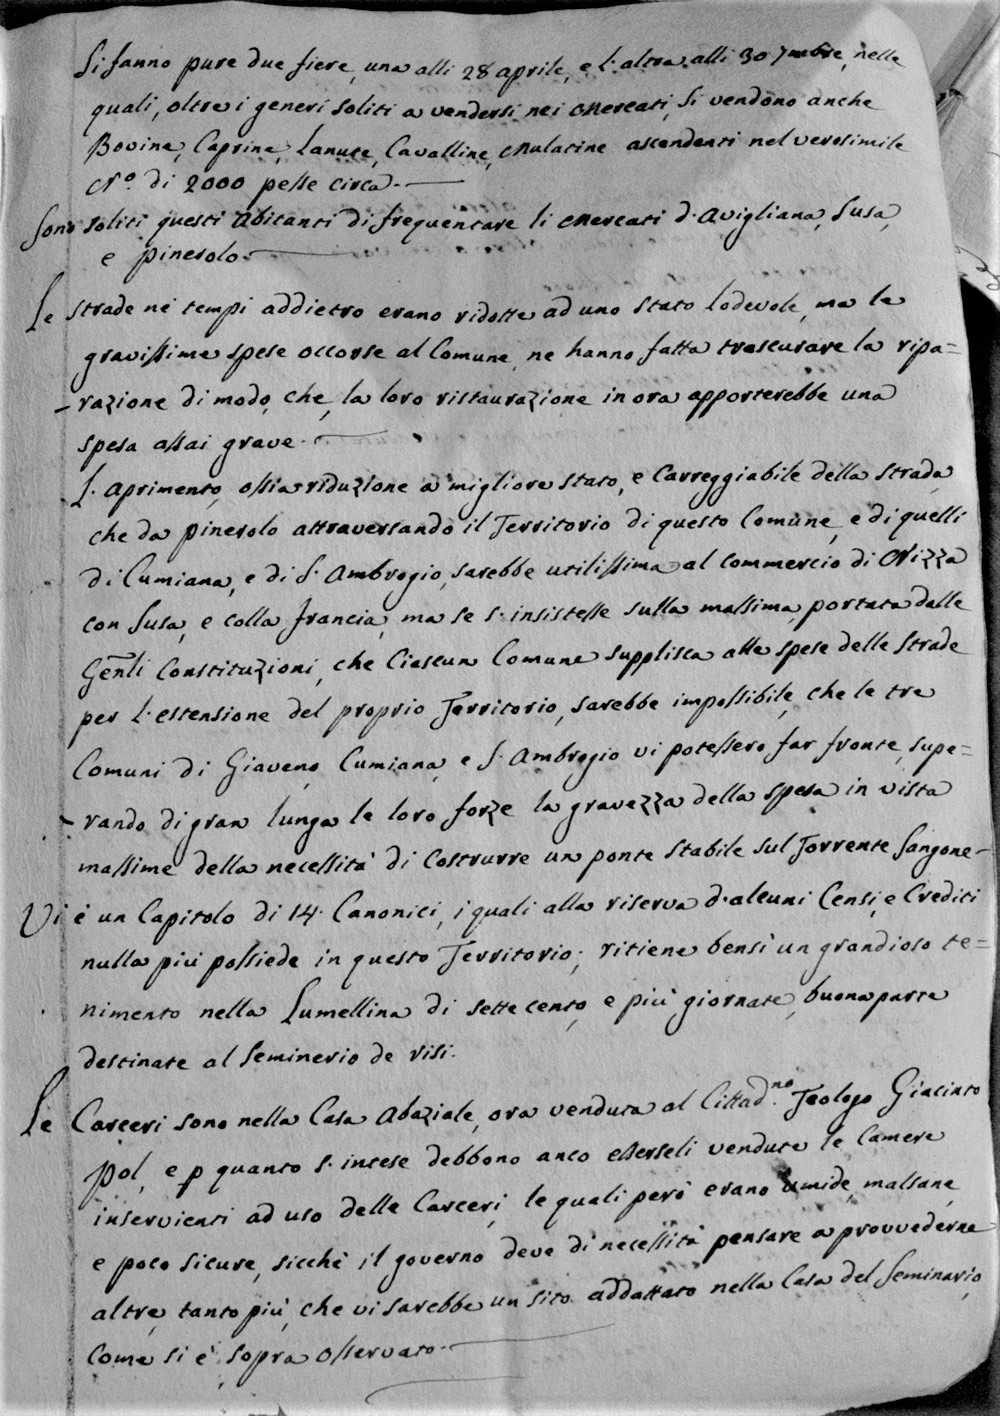 Si fanno pure due fiere, una alli 28 aprile, e l'altra alli 30 7mbre, nelle
quali, oltre i generi soliti a vendersi nei Mercati, si vendono anche
Bovine, Caprine, Lanute, Cavalline, Mulatine ascendenti nel verosimile
N.º di 2000 pelle circa.
Sono soliti questi Abitanti di frequentare li Mercati d'Avigliana, Susa,
e Pinerolo.
Le strade ne' tempi addietro erano ridotte ad uno stato lodevole, ma le
gravissime spese occorse al Comune, ne hanno fatta trascurare la ripa=
razione di modo, che, la loro ristaurazione in ora apporterebbe una
spesa assai grave.
L'aprimento, ossia riduzione a migliore stato, e Carreggiabile della strada,
che da Pinerolo attraversando il Territorio di questo Comune, e di quelli
di Cumiana, e di S. Ambrogio, sarebbe utilissima al commercio di Nizza
con Susa, e colla francia, ma se s'insistesse sulla massima, portata dalle
Gen̄li Constituzioni, che Ciascun Comune supplisca alle spese delle strade
per l'estensione del proprio Territorio, sarebbe impossibile, che le tre
Comuni di Giaveno, Cumiana, e S. Ambrogio vi potessero far fronte, supe=
rando di gran lunga le loro forze la gravezza della spesa in vista
massime della necessità di Costrurre un ponte stabile sul Torrente Sangone
Vi è un Capitolo di 14. Canonici, i quali alla riserva d'alcuni Censi, e Crediti
nulla più possiede in questo Territorio; ritiene bensì un grandioso te=
nimento nella Lumellina di sette cento, e più giornate, buona parte
destinate al Seminerio de risi.
Le Carceri sono nella Casa Abaziale, ora venduta al Cittad.no Teologo Giacinto
Pol, e p quanto s'intese debbono anco esserseli vendute le Camere
inservienti ad uso delle Carceri, le quali però erano umide, malsane,
e poco sicure, sicchè il governo deve di necessità pensare a provvederne
altre, tanto più, che vi sarebbe un sito addattato nella Casa del Seminario,
Come si è sopra osservato.